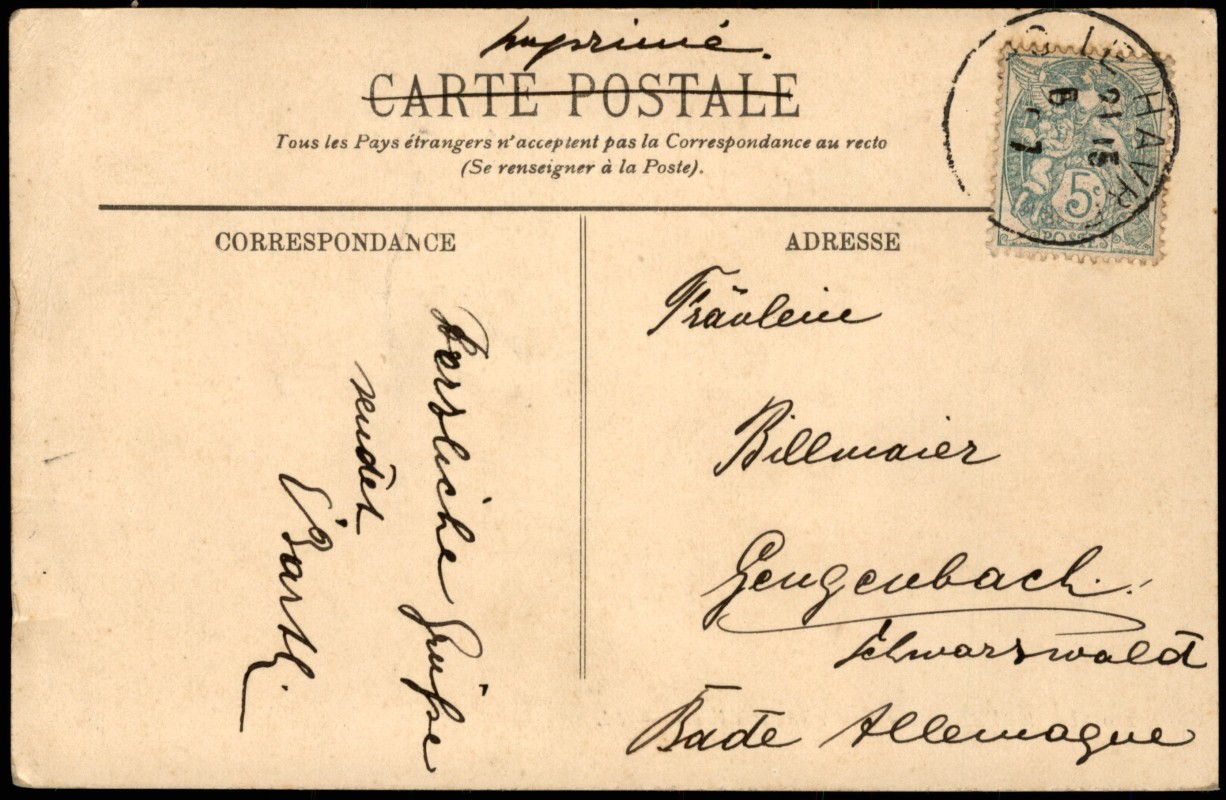 Imprimé.
CARTE POSTALE
Tous les Pays étrangers n'acceptent pas la Correspondance au recto
(Se renseigner à la Poste).
LE HAVRE
21 15
6 -7
5c
POSTES
CORRESPONDANCE
Herzliche Grüße
sendet
Barth.
ADRESSE
Fräulein
Billmaier
Gengenbach.
Schwarzwald
Bade Allemagne